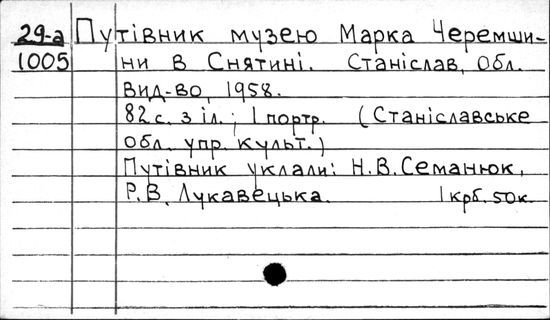 29-а Путівник музею Марка Черемши-
1005 ни в Снятині. Станіслав, Обл.
вид-во, 1958.
82 с. з іл.; 1 портр. (Станіславське
обл. упр. культ.)
Путівник уклали: Н.В. Семанюк,
Р.В. Лукавецька. 1 крб. 50 к.